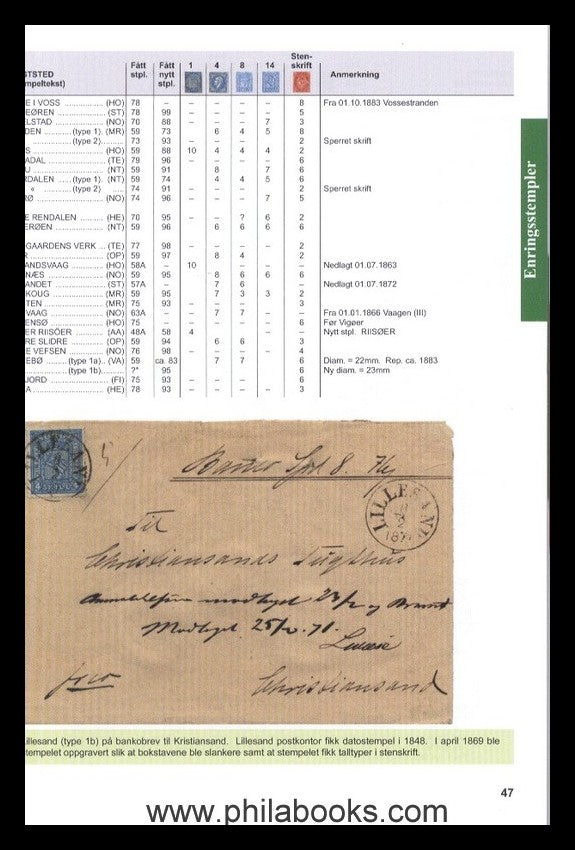 Sten-
Fått Fått 1 4 8 14 skrift
STSTED stpl. nytt Anmerkning
mpeltekst) stpl.
E I VOSS (HO) 78 – – – – – 8 Fra 01.10.1883 Vossestranden
EØREN (ST) 78 99 – – – – 5
ELSTAD (NO) 70 88 – – – 7 3
DEN (type 1). (MR) 59 73 6 4 5 8
(type 2) 73 93 – – – – 2 Sperret skrift
S (HO) 59 88 10 4 4 4 2
ADAL (TE) 79 96 – – – – 6
U (NT) 59 91 8 – 7 6
RDALEN (type 1). (NT) 59 74 4 4 5 6
" « (type 2) 74 91 – – – – 2 Sperret skrift
RØ (NO) 74 96 – – – 7 5
E RENDALEN (HE) 70 95 – – ? 6 2
ERØEN (NT) 59 96 6 6 6 6
GAARDENS VERK (TE) 77 98 – – – – 2
R (OP) 59 97 8 4 – 2
ANDSVAAG (HO) 58A – 10 – – – – Nedlagt 01.07.1863
NÆS (NO) 59 95 8 6 6 6
ANDET (ST) 57A – 7 6 – – Nedlagt 01.07.1872
KOUG (MR) 59 95 7 3 3 2
TEN (MR) 75 93 – – – – 3
VAAG (NO) 63A – – 7 7 – – Fra 01.01.1866 Vaagen (III)
ENSØ (NO) 75 – – – – – 6 Før Vigøer
ER RIISÖER (AA) 48A 58 4 – – – – Nytt stpl. RIISØER
RE SLIDRE (OP) 59 94 6 6 – 3
E VEFSEN (NO) 76 98 – – – – 4
EBØ (type 1a).. (VA) 59 ca. 83 7 7 – 6 Diam. = 22mm. Rep. ca. 1883
(type 1b) ?* 95 6 Ny diam. = 23mm
JORD (FI) 75 93 – – – – 6
A (HE) 78 93 – – – – 3
Enringsstempler
LILLESAND
LILLESAND
187
Til
Christiansands Tugthus
modtaget 23/2 og
Modtaget 25/2 71.
Christiansand
illesand (type 1b) på bankobrev til Kristiansand. Lillesand postkontor fikk datostempel i 1848. I april 1869 ble
tempelet oppgravert slik at bokstavene ble slankere samt at stempelet fikk talltyper i stenskrift.
47
www.philabooks.com